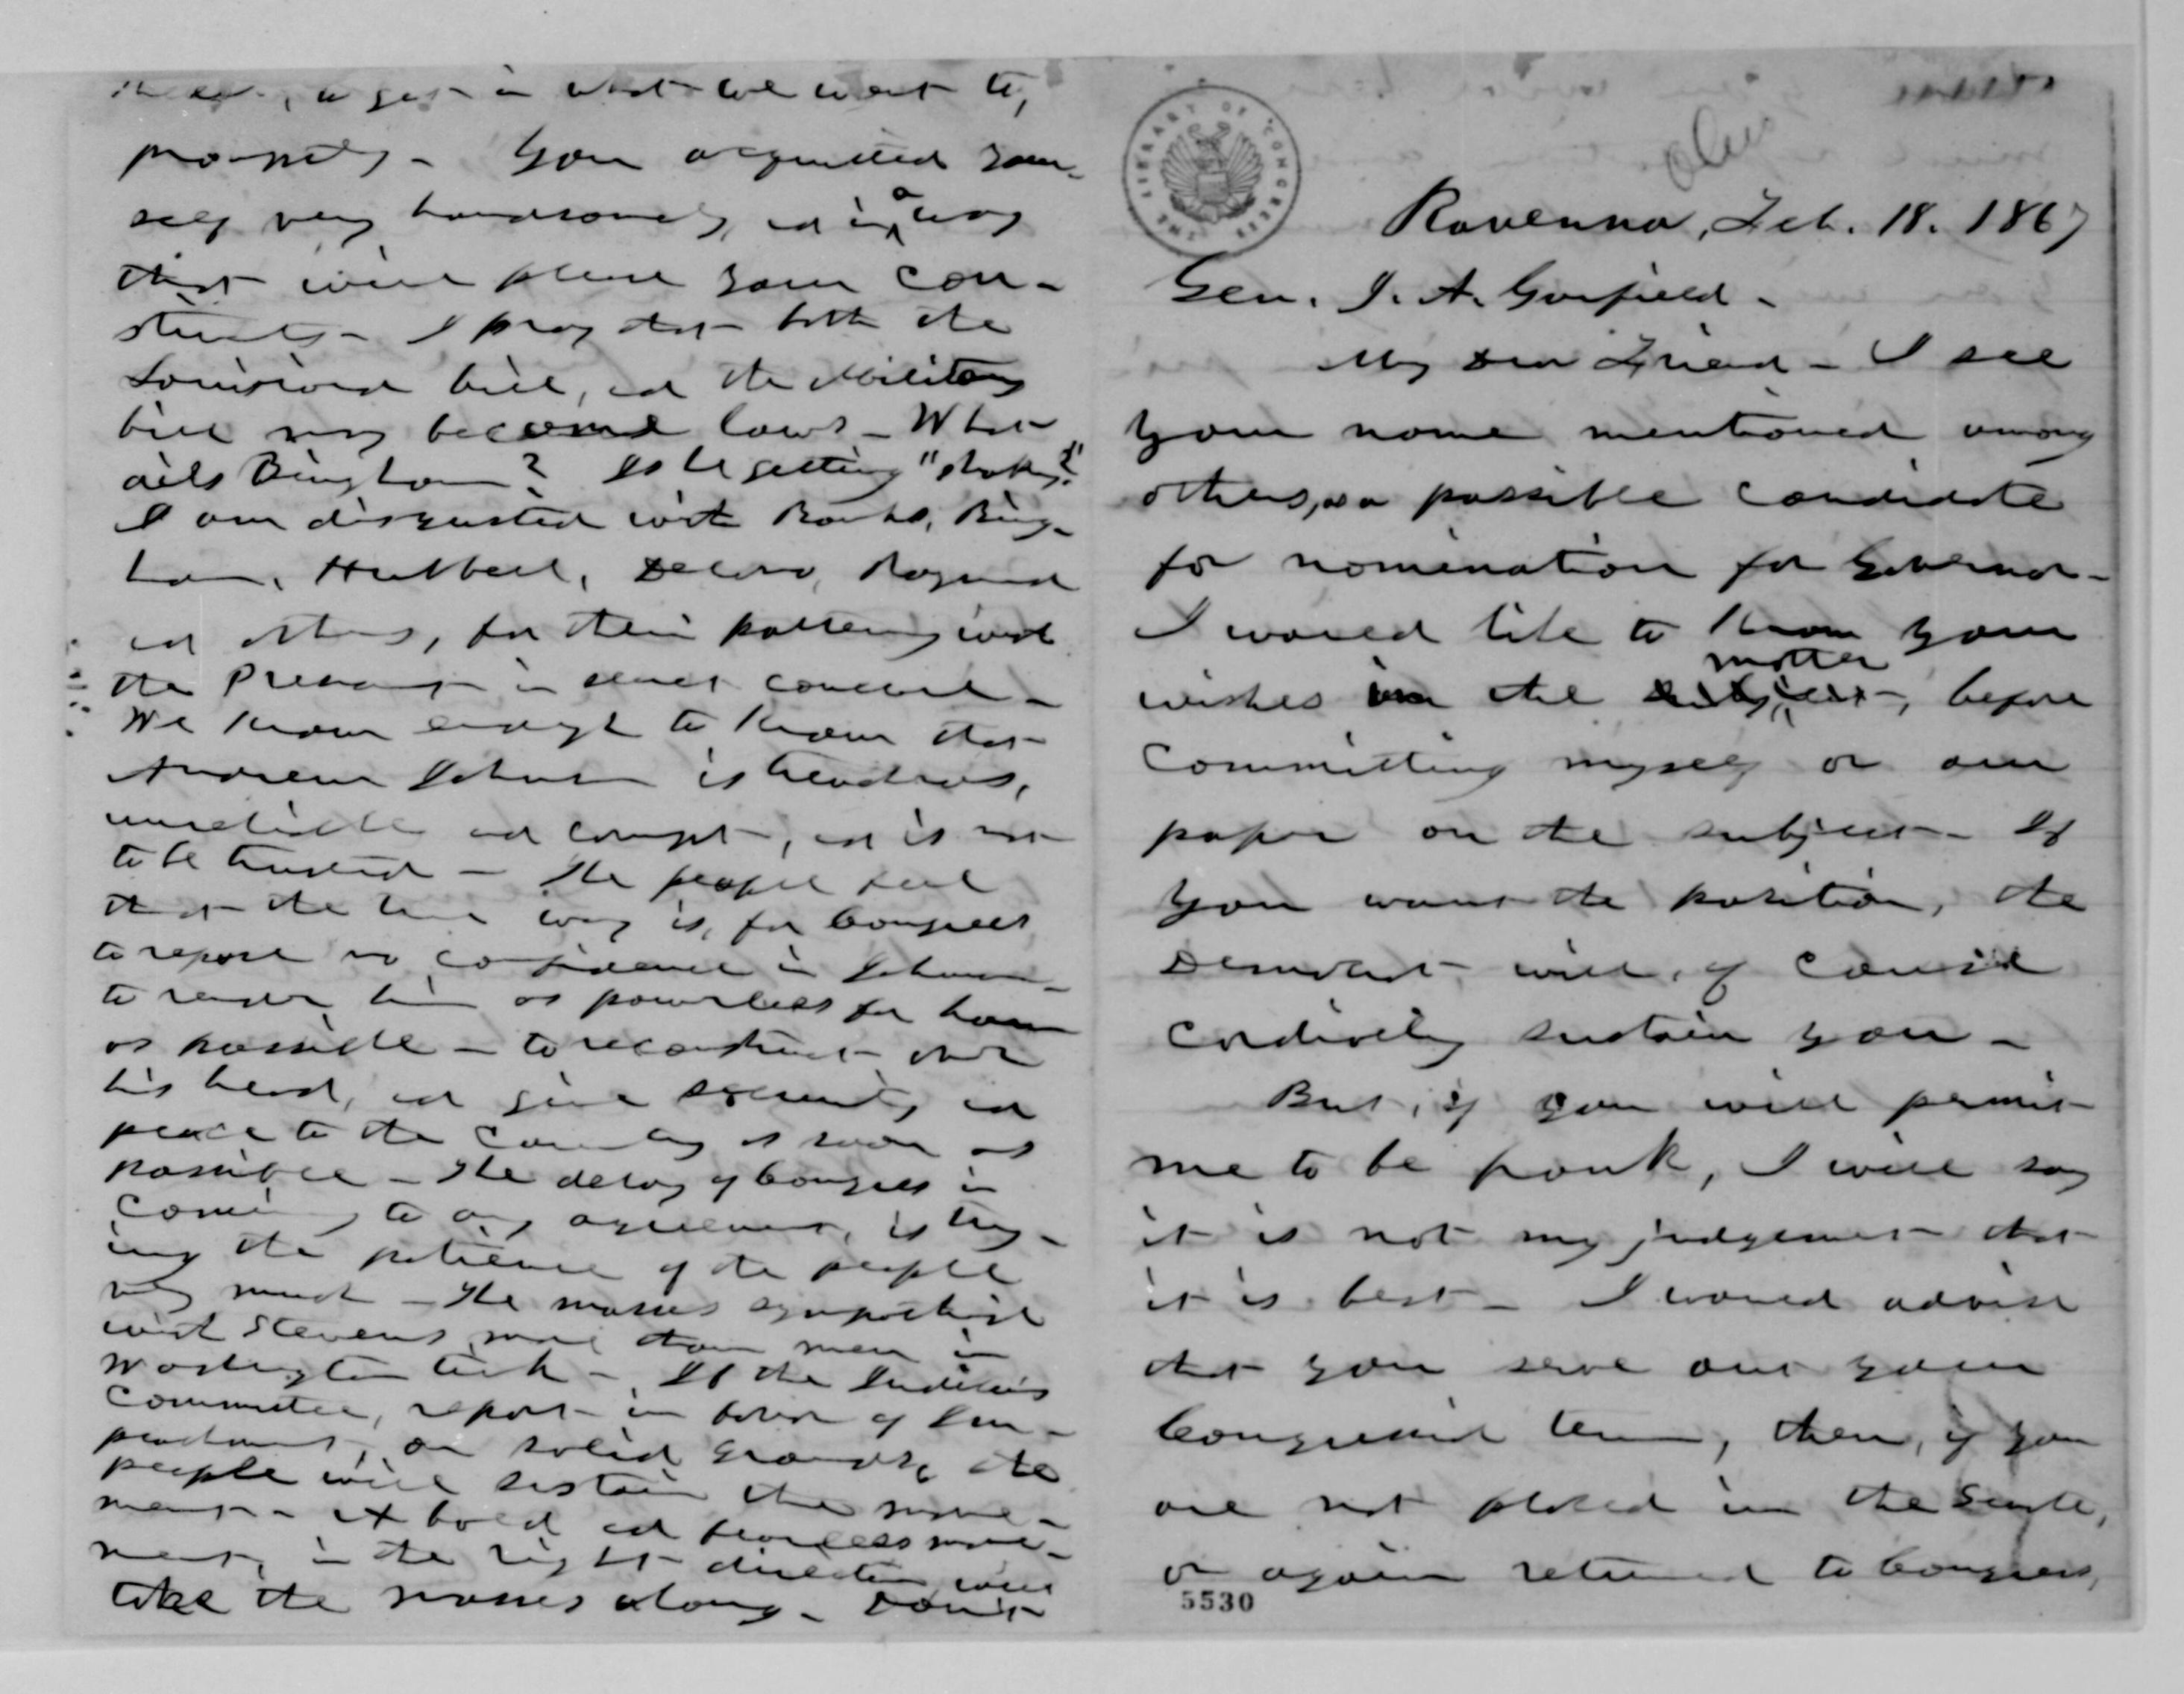 Ravenna, Feb. 18. 1867
Gen. J. A. Garfield -
My Dear Friend - I see
your name mentioned among
others, as a possible candidate
for nomination for Governor -
I would like to know your
wishes in the matter, before
committing myself or our
paper on the subject - If
you want the position, the
Democrat will, of course
cordially sustain you -
But, if you will permit
me to be frank, I will say
it is not my judgement that
it is best - I would advise
that you serve out your
Congressional term, then, if you
are not placed in the Senate,
or again returned to Congress,
5530
THE LIBRARY OF CONGRESS
to get in what we want to,
promptly - You acquitted your-
self very handsomely, and in a way
that will please your con-
stituents - I pray that both the
Louisiana bill, and the Military
bill may become laws - What
ails Bingham? Is he getting "shaky"?
I am disgusted with Banks, Bing-
ham, Hubbell, Delano, Raymond
and others, for their paltering with
the President in secret conclave -
We know enough to know that
Andrew Johnson is treacherous,
unreliable and corrupt, and is not
to be trusted - The people feel
that the true way is, for Congress
to repose no confidence in Johnson -
to render him as powerless for harm
as possible - to reconstruct over
his head, and give security and
peace to the country as soon as
possible - The delay of Congress in
coming to any agreement, is try-
ing the patience of the people
very much - The masses sympathise
with Stevens more than men in
Washington think - If the Judiciary
Committee, report in favor of Im-
peachment, on solid grounds, the
people will sustain the move-
ment - A bold and fearless move-
ment, in the right direction, will
take the masses along - Don't